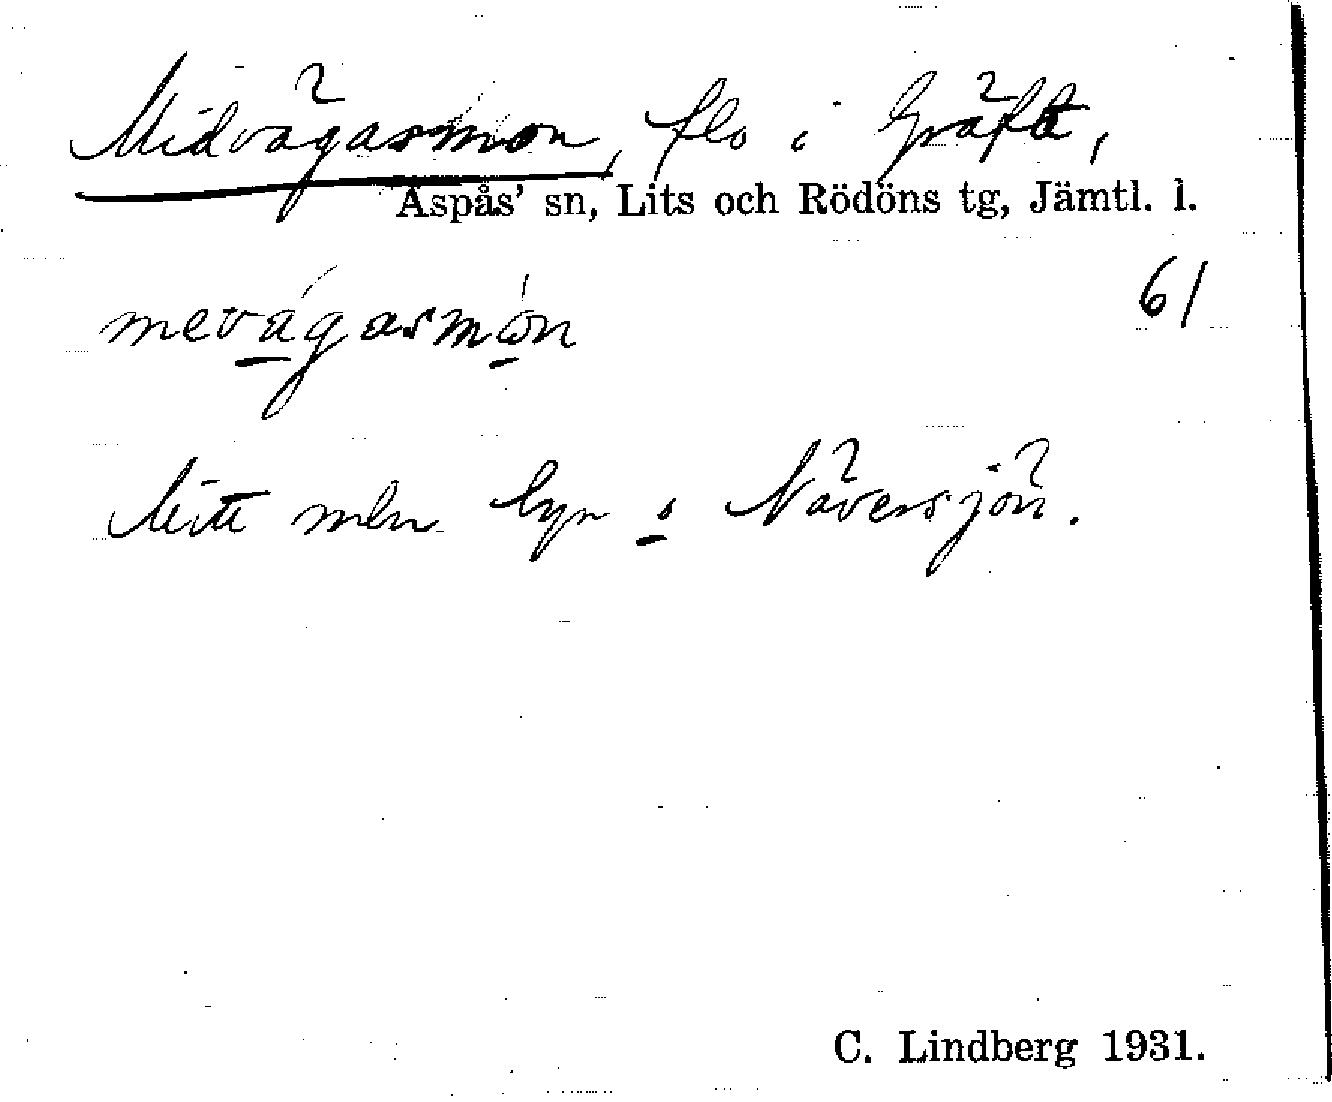 Midvägasmon, flo i Gräfte,
Aspås' sn, Lits och Rödöns tg, Jämtl. l.
61
mevägasmón
Mitt mln byn o Näversjön.
C. Lindberg 1931.